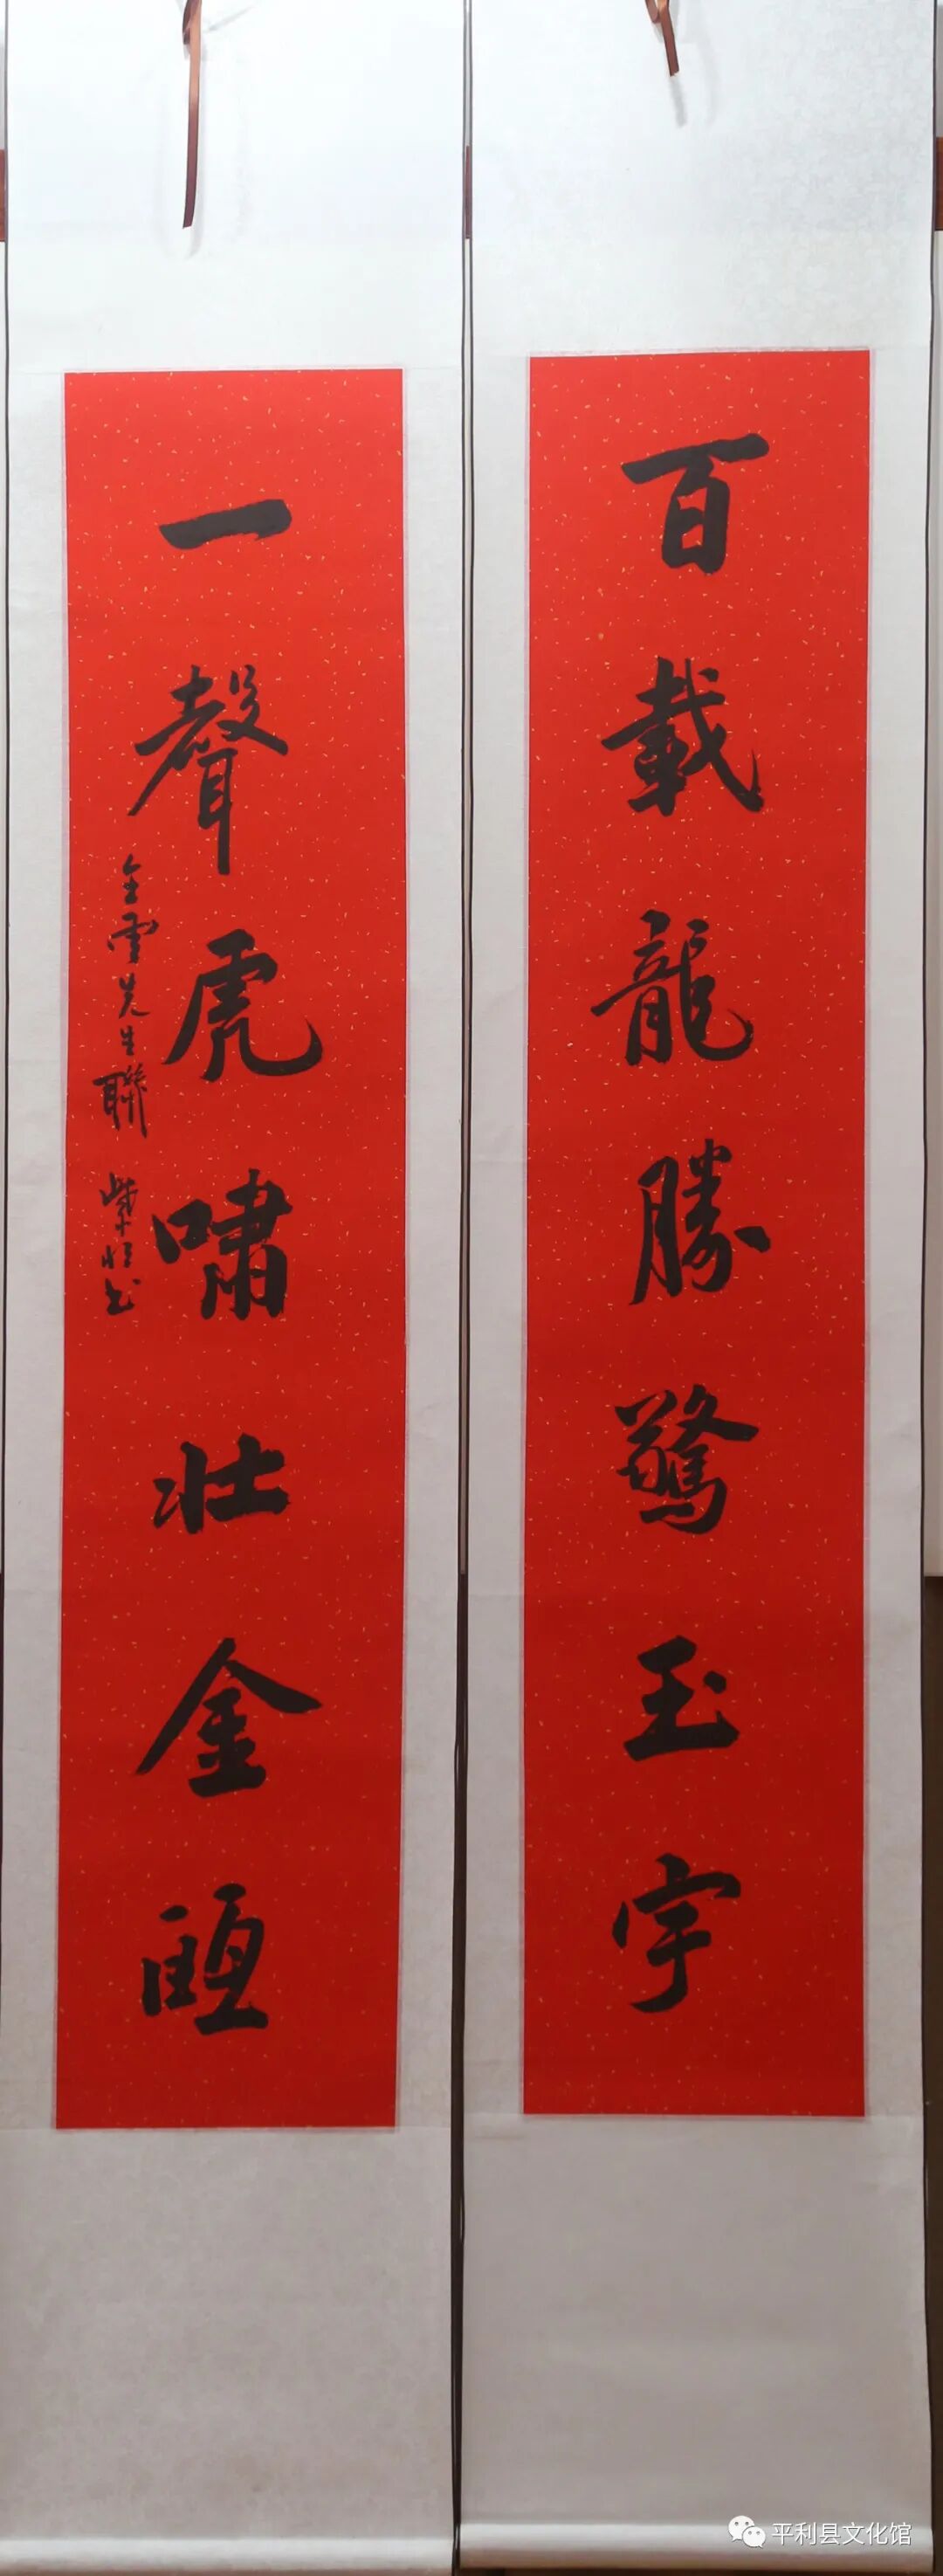 百載龍勝驚玉宇
一聲虎嘯壯金甌
全雲先生聯 紫恒书
平利县文化馆